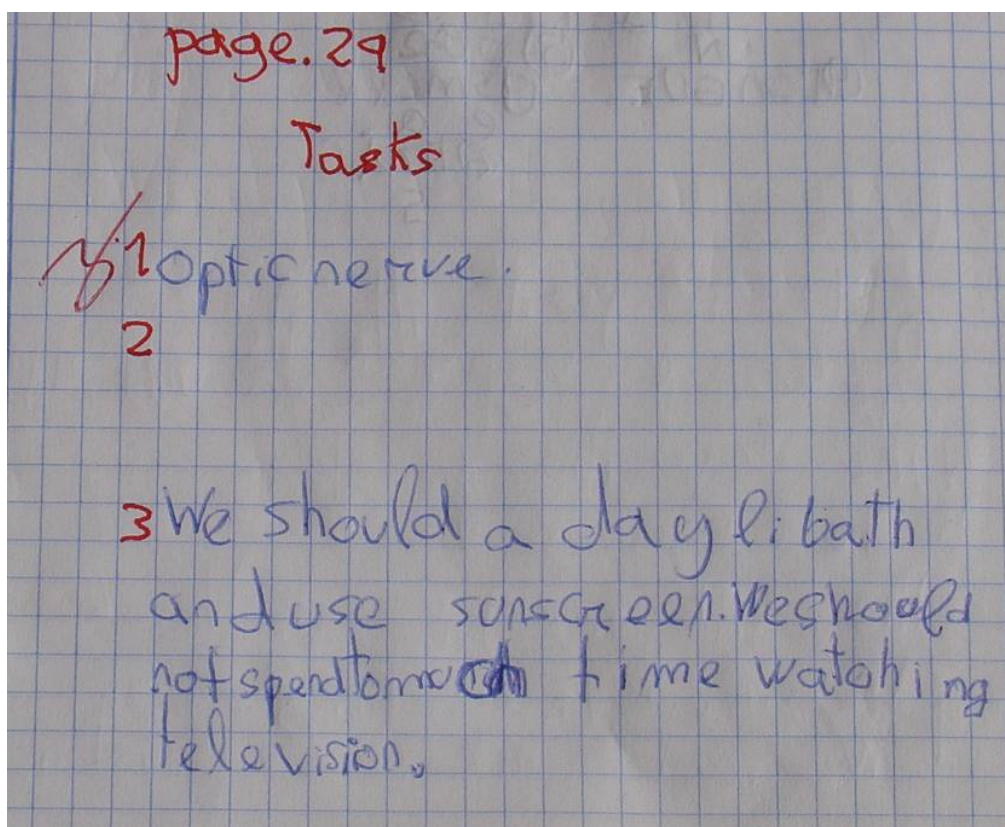 page.29
Tasks
1 Optic nerve.
2
3 We should a day li bath
and use sunscreen. We should
not spend to much time watching
television.